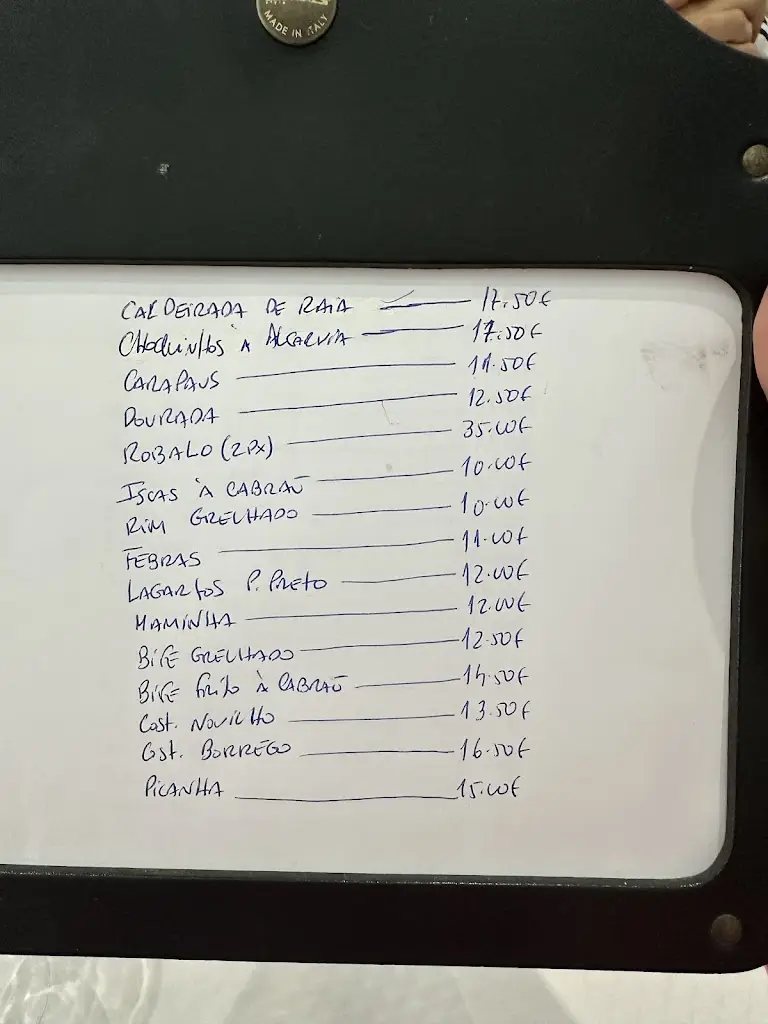 MADE IN ITALY
CALDEIRADA DE RAIA 17.50€
CHOQUINHOS À ALGARVIA 17.50€
CARAPAUS 11.50€
DOURADA 12.50€
ROBALO (2PX) 35.00€
ISCAS À CABRAÚ 10.00€
RIM GRELHADO 10.00€
FEBRAS 11.00€
LAGARTOS P. PRETO 12.00€
MAMINHA 12.00€
BIFE GRELHADO 12.50€
BIFE FRITO À CABRAÚ 14.50€
COST. NOVILHO 13.50€
COST. BORREGO 16.50€
PICANHA 15.00€